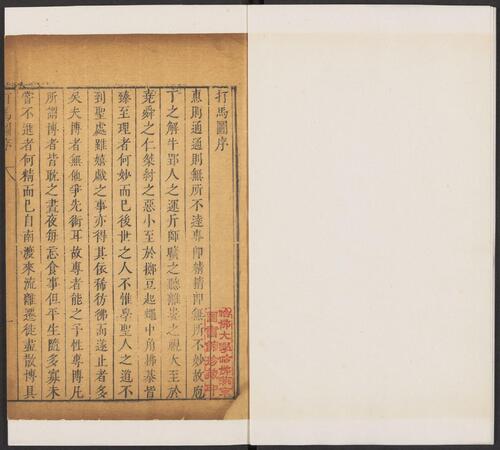 打馬圖序
慧則通通則無所不達專即精精即無所不妙故庖
丁之解牛郢人之運斤師曠之聽離婁之視大至於
堯舜之仁桀紂之惡小至於擲豆起蠅巾角拂棊皆
臻至理者何妙而已後世之人不惟學聖人之道不
到聖處雖嬉戲之事亦得其依稀彷彿而遂止者多
矣夫博者無他爭先術耳故專者能之予性專博凡
所謂博者皆耽之晝夜每忘食事但平生隨多寡未
嘗不進者何精而已自南渡來流離遷徙盡散博具
打馬圖序
一
哈佛大學哈佛燕京
圖書館珍藏印